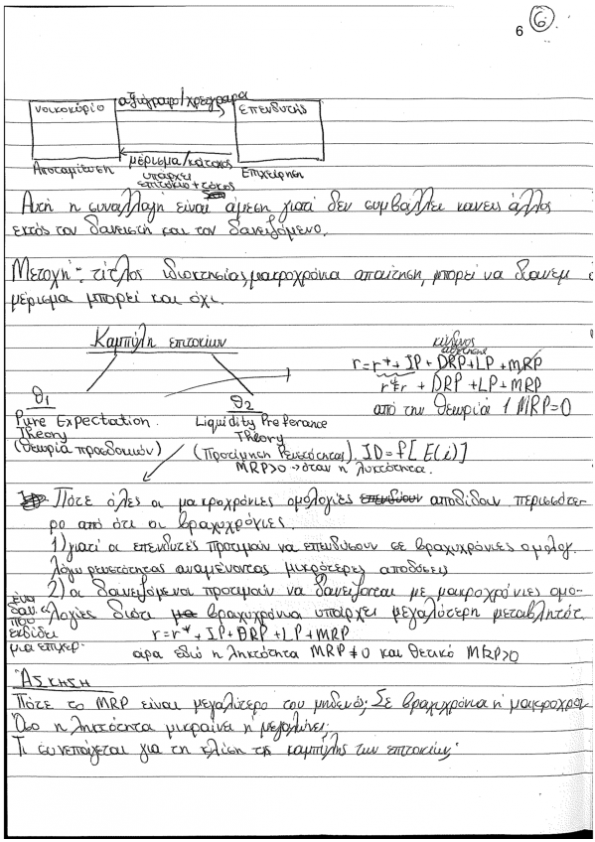 6 6
αξιόγραφο/χρεόγραφα
νοικοκύριο επενδυτής
μέρισμα/
Αποταμίευση υπάρχει Επιχείρηση
επιτόκιο + τόκος
Αυτή η συναλλαγή είναι άμεση γιατί δεν συμβάλλει κανείς άλλος
εκτός τον δανειστή και τον δανειζόμενο.
Μετοχή: τίτλος ιδιοκτησίας, μακροχρόνια απαίτηση, μπορεί να διανεμ
μέρισμα μπορεί και όχι.
Καμπύλη επιτοκίων
κίνδυνος
r = r* + IP + DRP + LP + MRP
r*r + DRP + LP + MRP
θ1 θ2 από την θεωρία 1 MRP=0
Pure Expectation Liquidity Preferance
Theory Theory
(θεωρία προσδοκιών) (Προτίμηση Ρευστότητας). ID = f[E(i)]
MRP>0 → όταν η ληκτότητα.
Πότε όλες οι μακροχρόνιες ομολογίες αποδίδουν περισσότε-
ρο από ότι οι βραχυχρόνιες.
1) γιατί οι επενδυτές προτιμούν να επενδύσουν σε βραχυχρόνιες ομολογ.
λόγω ρευστότητας αναμένοντας μικρότερες αποδόσεις
2) οι δανειζόμενοι προτιμούν να δανείζονται με μακροχρόνιες ομο-
λογίες διότι βραχυχρόνια υπάρχει μεγαλύτερη μεταβλητότ.
ένα
που
εκδίδει
μια επιχειρ.
r = r* + IP + DRP + LP + MRP
άρα εδώ η ληκτότητα MRP ≠ 0 και θετικό MRP>0
Άσκηση
Πότε το MRP είναι μεγαλύτερο του μηδενός; Σε βραχυχρόνια ή μακροχρον
Όσο η ληκτότητα μικραίνει ή μεγαλώνει;
Τι συνεπάγεται για τη κλίση της καμπύλης των επιτοκίων;